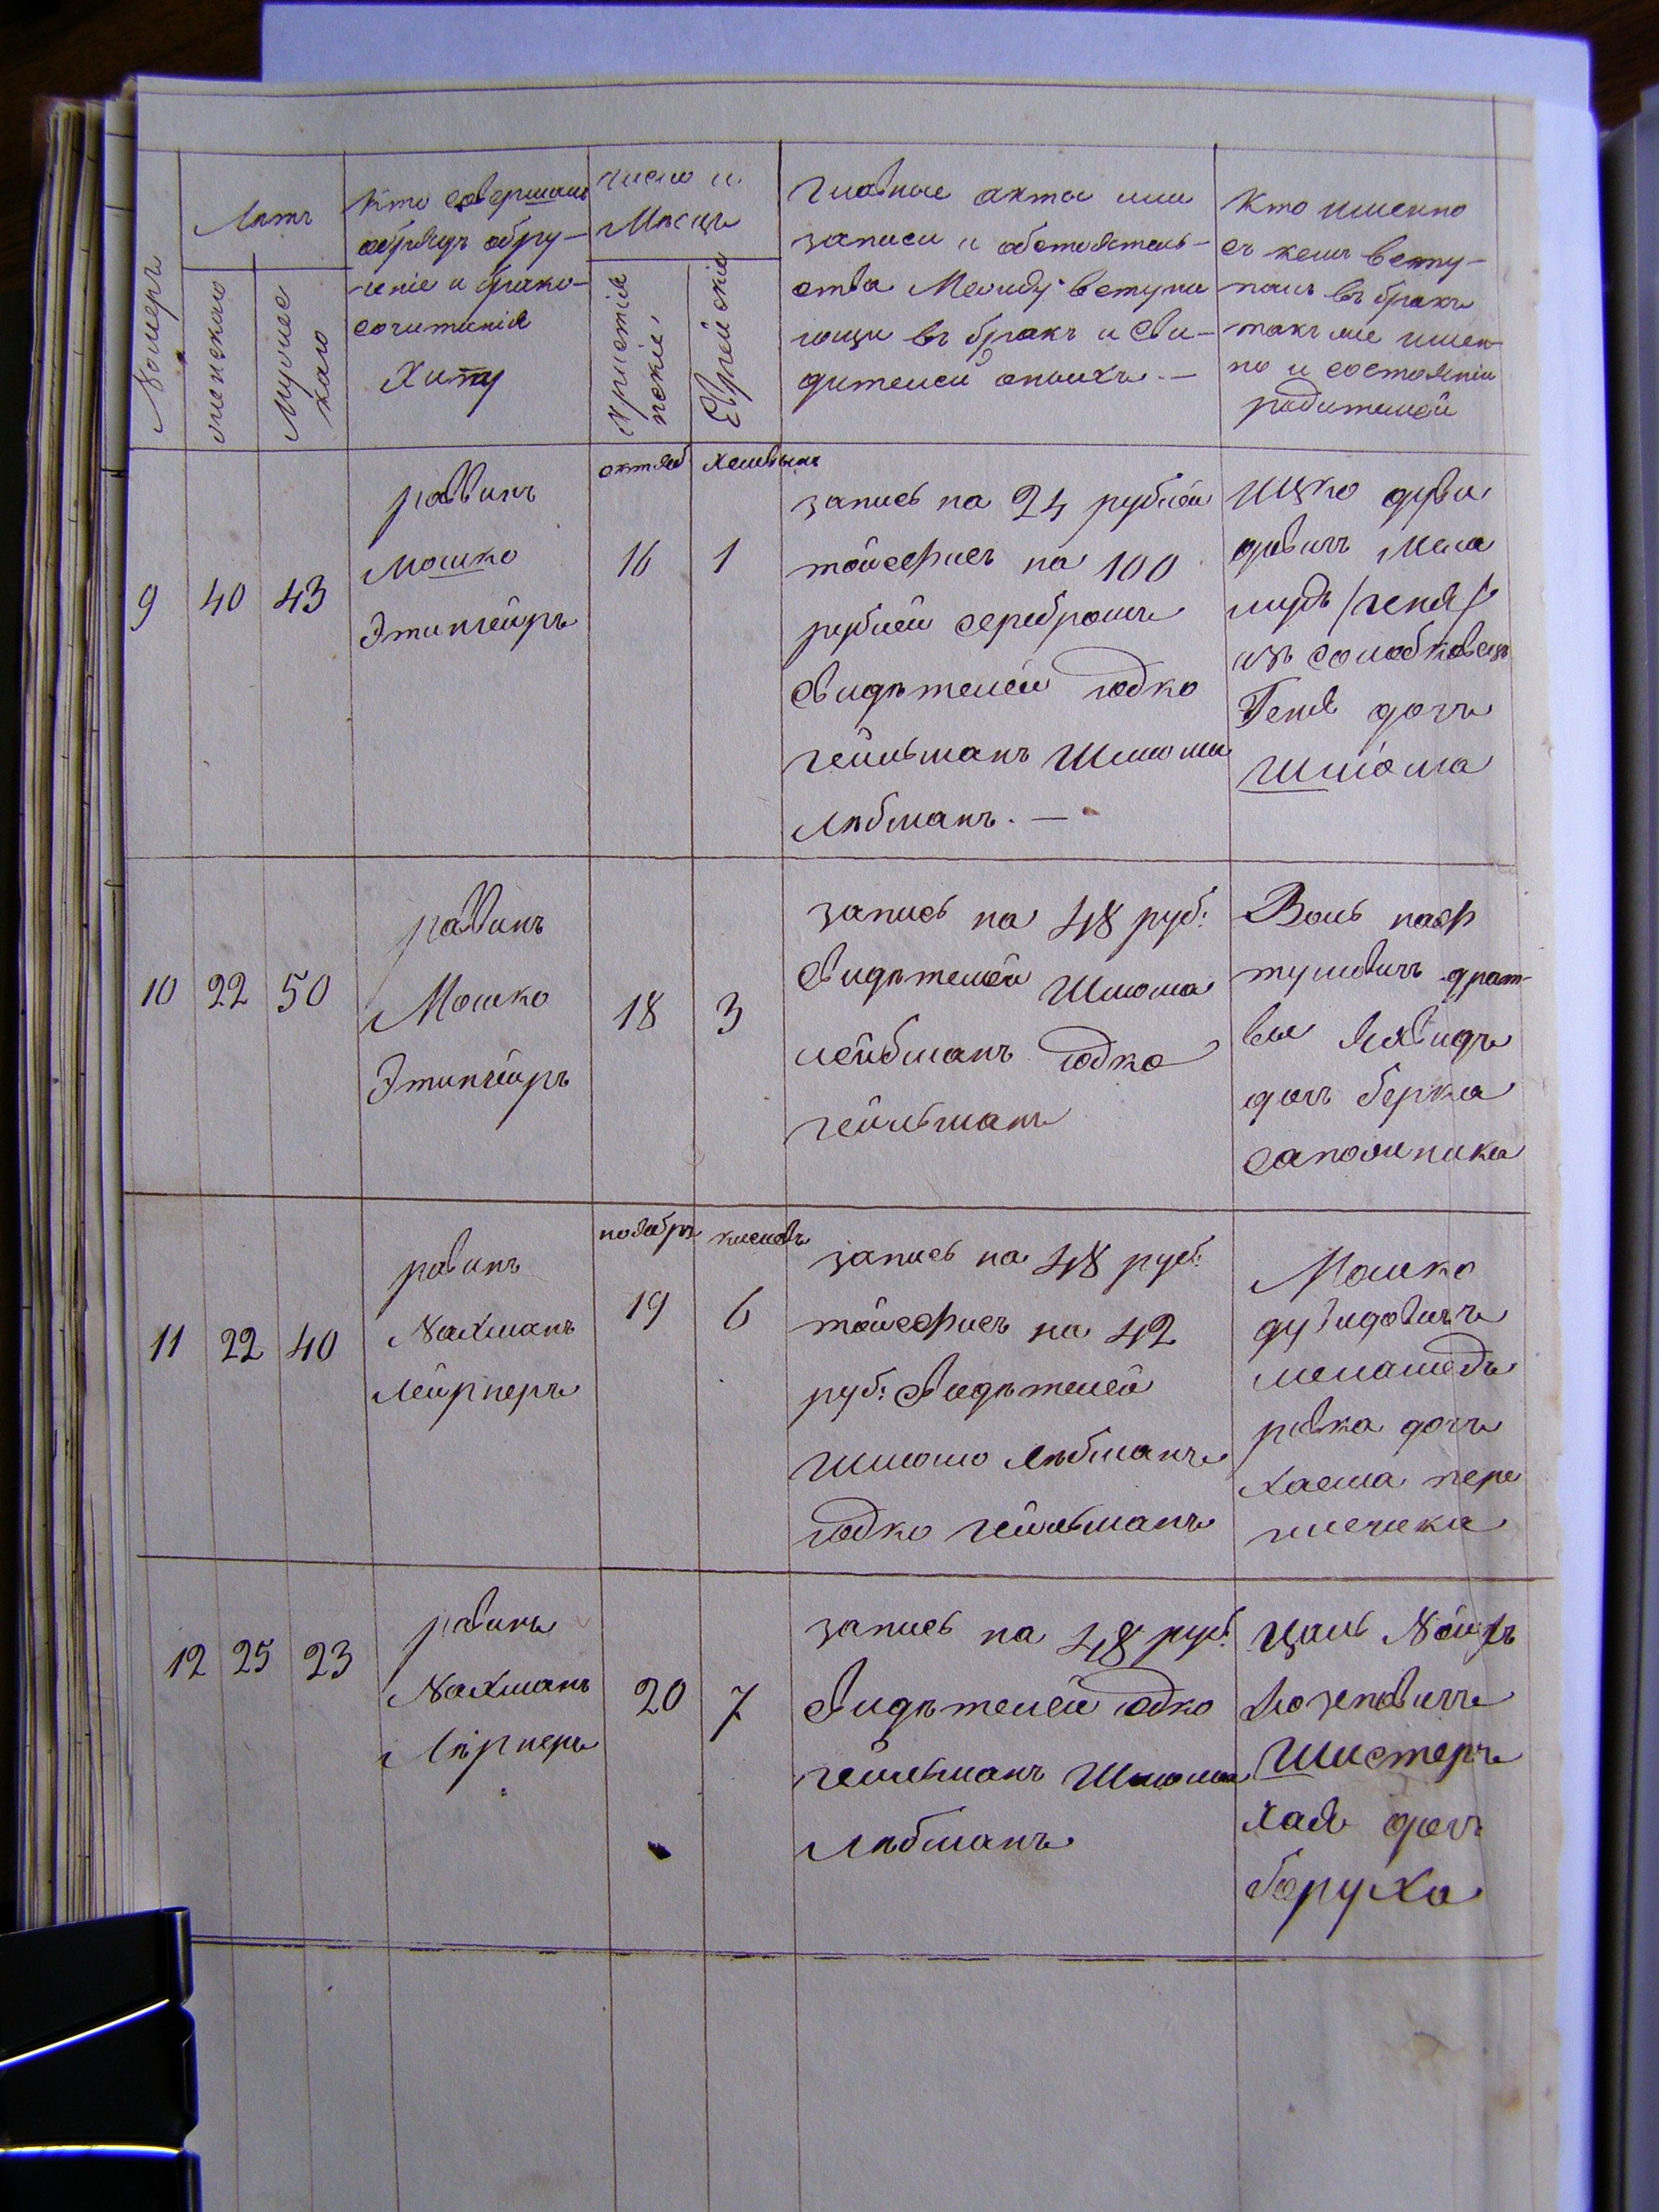 Номеръ
Лѣтъ
женскаго
Мужес
каго
Кто совершалъ
обрядъ обру-
ченіе и брако-
сочитанія
Хипу
число и
Мѣсяцъ
Христія
нскіе,
Еврейскіе
Главные акты или
записи и обстоятель-
ства Между вступа
ющи въ бракъ и Сви-
дителей оныхъ. —
Кто именно
съ кемъ всту-
палъ въ бракъ
такъ же имен-
но и состояніи
родителей
9
40
43
раввинъ
Мошко
Этингейръ
октяб
16
хешвынъ
1
запись на 24 рублей
тойсефисъ на 100
рублей серебромъ
Свидѣтелей Юдко
гейльманъ Шлюма
Лѣбманъ. —
Ицко дуви
довичъ Мела
мудъ /геня/
изъ солобковецъ
Геня дочъ
Шлюма
10
22
50
раввинъ
Мошко
Этингейръ
18
3
запись на 48 руб:
Свидѣтелей Шлюма
лейбманъ Юдко
гейльманъ
Воль наф
туловичъ драт-
вы
дочъ берка
сапожника
11
22
40
равинъ
Нахманъ
Лейрнеръ
ноябръ
19
кислевъ
6
запись на 48 руб:
тойсефисъ на 42
руб: Свидѣтелей
Шлюмо Лѣбманъ
Юдко гейльманъ
Мошко
дувидовичъ
меламедъ
ривка дочъ
хаема пере
12
25
23
равинъ
Нахманъ
Лѣрнеръ
20
7
запись на 48 руб:
Свидѣтелей Юдко
гейльманъ Шлюма
Лѣбманъ
Цаль
Юзеповичъ
Шистеръ
хая дочъ
боруха